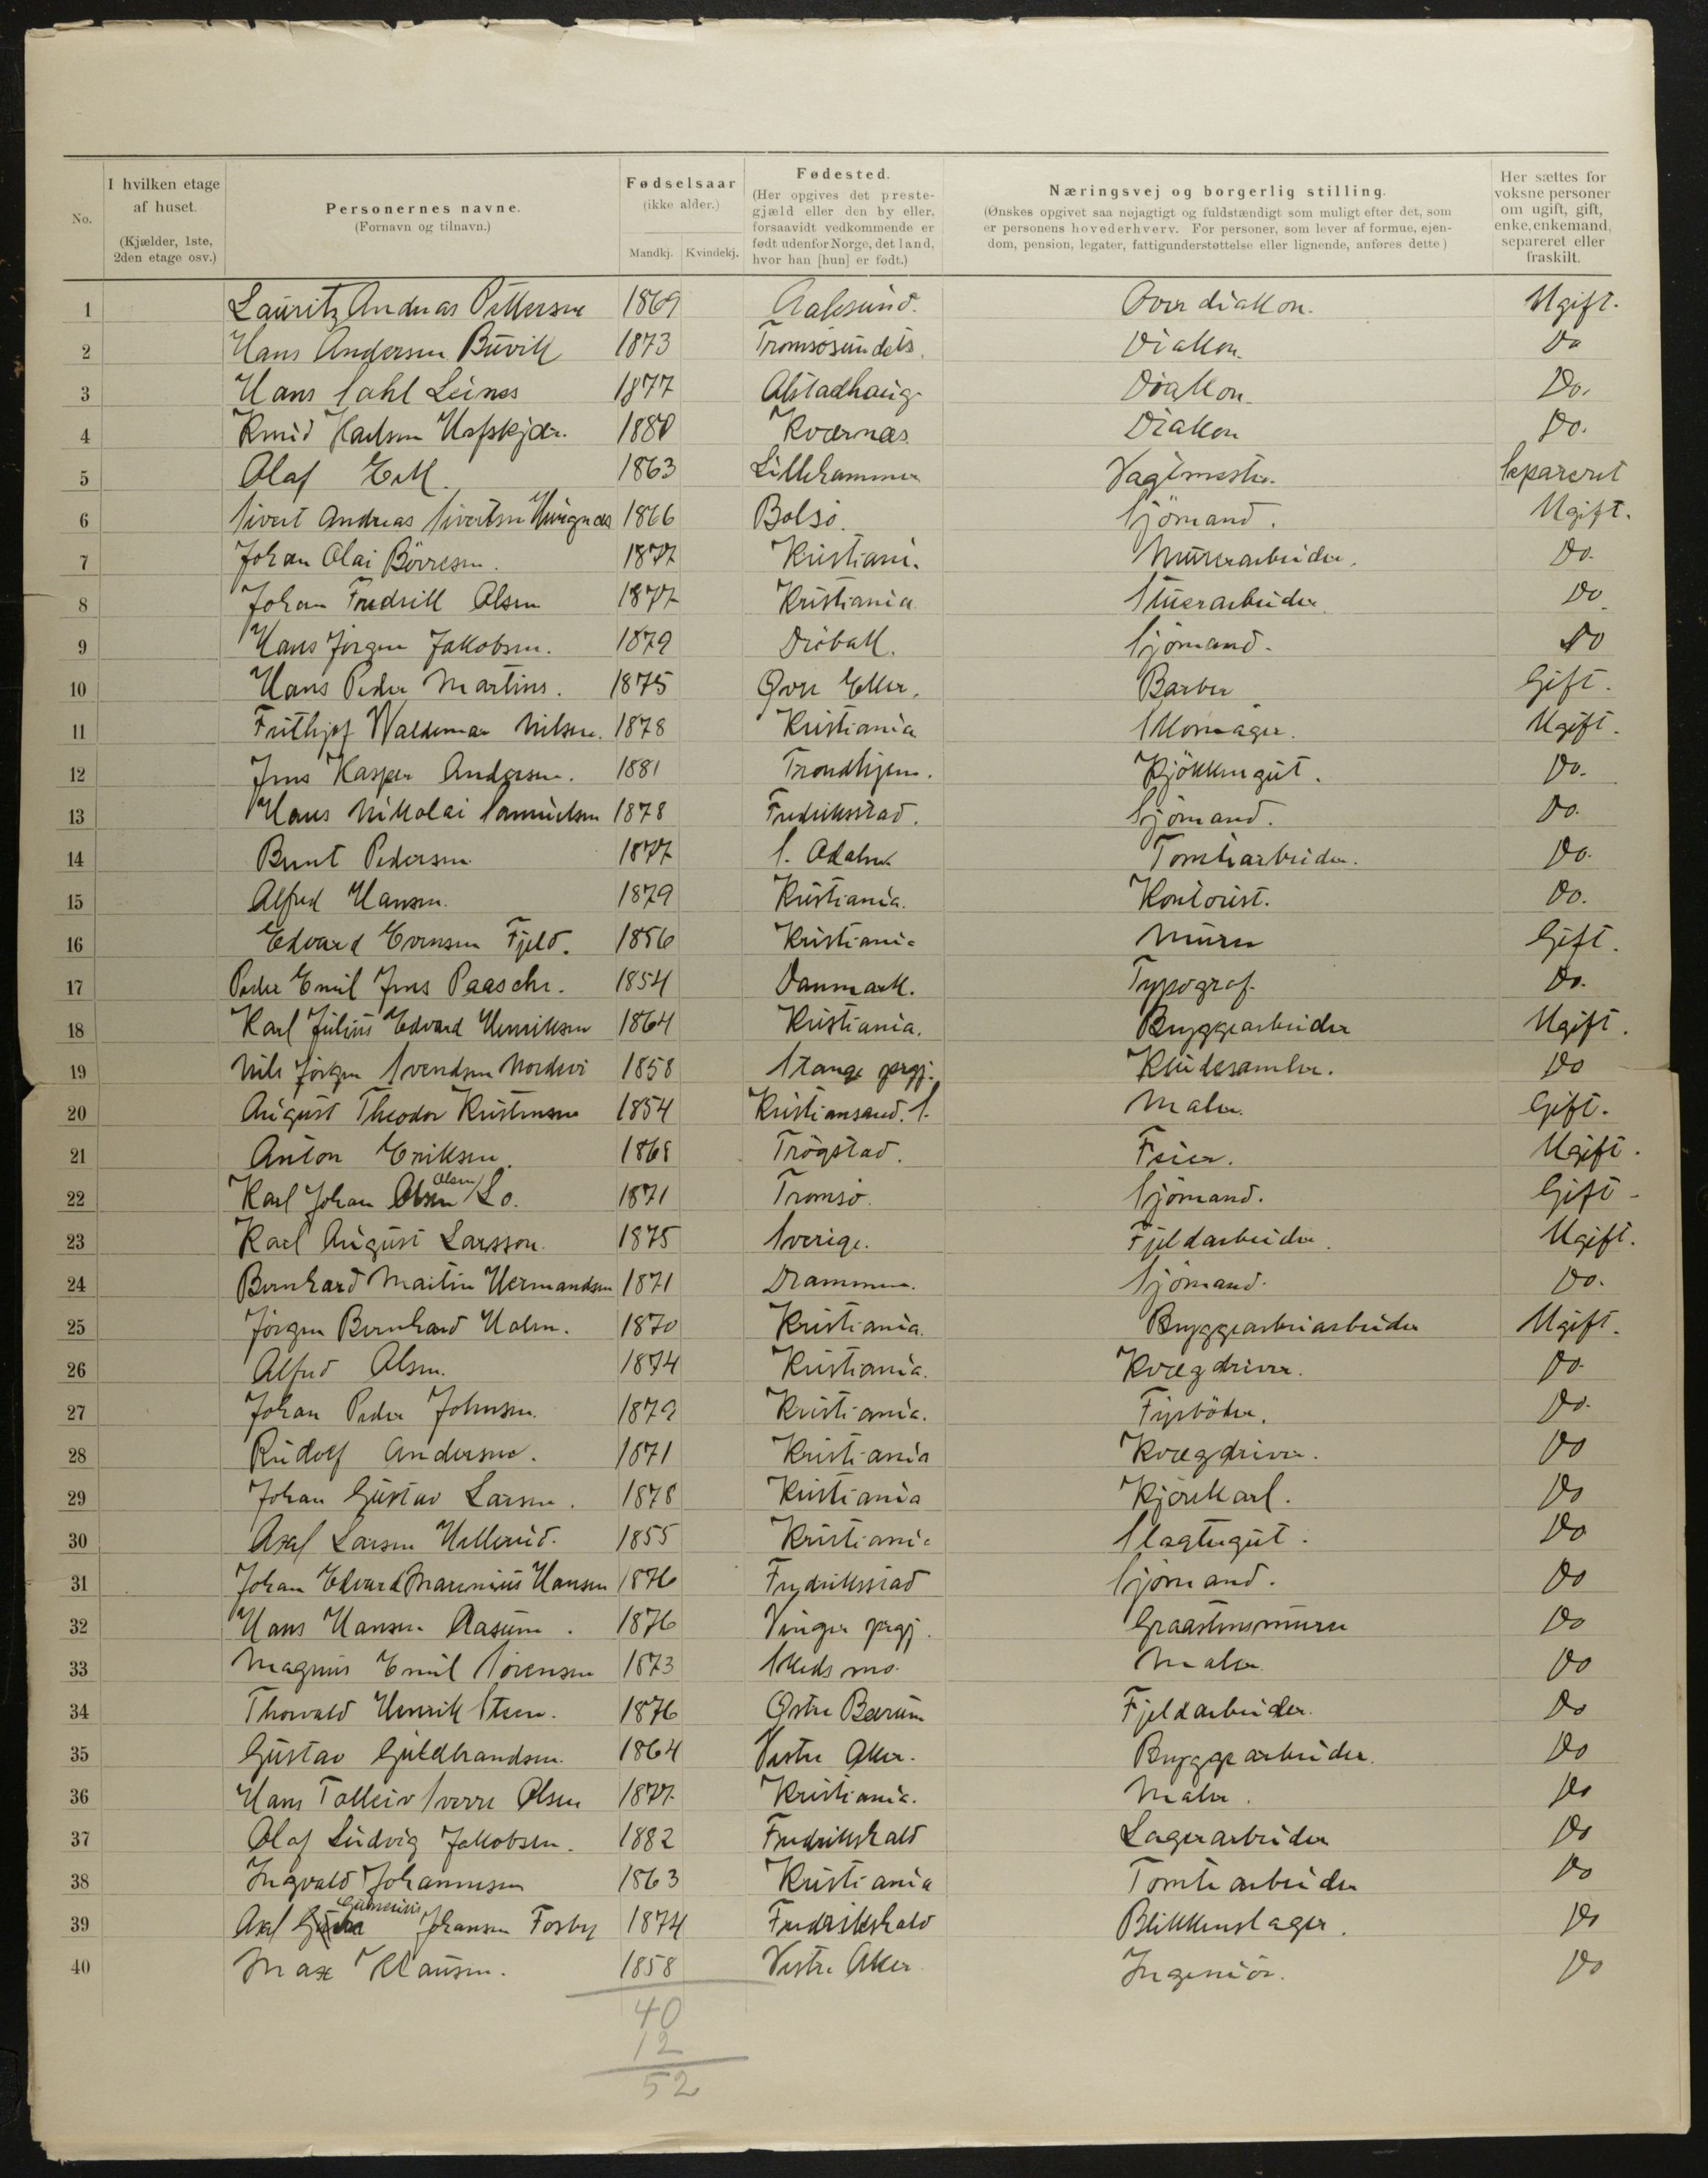 No.
I hvilken etage af huset. (Kjælder, 1ste, 2den etage osv.)
Personernes navne. (Fornavn og tilnavn.)
Fødselsaar (ikke alder.) Mandkj. Kvindekj.
Fødested. (Her opgives det prestegjæld eller den by eller, forsaavidt vedkommende er født udenfor Norge, det land, hvor han [hun] er født.)
Næringsvej og borgerlig stilling. (Ønskes opgivet saa nøjagtigt og fuldstændigt som muligt efter det, som er personens hovederhverv. For personer, som lever af formue, ejendom, pension, legater, fattigunderstøttelse eller lignende, anføres dette)
Her sættes for voksne personer om ugift, gift, enke, enkemand, separeret eller fraskilt.
1 Lauritz Andreas Pettersen 1869 Aalesund. Overdiakon. Ugift.
2 Hans Andersen Buvik 1873 Tromsøsundets. Diakon. Do
3 Hans Dahl Leines 1877 Alstadhaug Diakon. Do.
4 Knud Karlsen Hafskjær. 1880 Kværnes Diakon Do.
5 Olaf Eek. 1863 Lillehammer Vagtmester. Separeret
6 Sivert Andreas Sivertsen 1866 Bolsø. Sjömand. Ugift.
7 Johan Olai Börresen. 1877 Kristiani. Murerarbeider. Do.
8 Johan Fredrik Olsen 1877 Kristiania Stuerarbeider Do
9 Hans Jörgen Jakobsen. 1879 Dröbak. Sjömand. Do
10 Hans Peder Martins. 1875 Øvre Eker. Barber Gift.
11 Frithjof Waldemar Nilsen. 1878 Kristiania Skomager. Ugift.
12 Jens Kasper Andersen. 1881 Trondhjem. Kjökkengut. Do.
13 Hans Nikolai Samuelsen 1878 Fredriksstad. Sjömand. Do.
14 Bernt Pedersen 1877 S. Odalen Tomtearbeider. Do.
15 Alfred Hansen. 1879 Kristiania. Kontorist. Do.
16 Edvard Evensen Fjeld. 1856 Kristiania Murer Gift.
17 Peder Emil Jens Paasche. 1854 Danmark. Typograf. Do.
18 Karl Julius Edvard Henriksen 1864 Kristiania. Bryggearbeider Ugift.
19 Nils Jörgen Svendsen Nordsvi 1858 Stange prgj. Kludesamler. Do
20 August Theodor Kristensen 1854 Kristiansand. S. Maler. Gift.
21 Anton Eriksen 1868 Trögstad. Feier. Ugift.
22 Karl Johan Olsen Lo. 1871 Tromsö. Sjömand. Gift
23 Karl August Larsson. 1875 Sverige. Fjeldarbeider. Ugift.
24 Bernhard Martin Hermandsen 1871 Drammen. Sjömand. Do.
25 Jörgen Bernhard Holm. 1870 Kristiania. Bryggearbeiarbeider Ugift.
26 Alfred Olsen. 1874 Kristiania. Kvægdriver. Do.
27 Johan Peder Johnsen. 1879 Kristiania. Fyrböder. Do.
28 Rudolf Andersen. 1871 Kristiania Kvægdriver. Do
29 Johan Gustav Larsen. 1878 Kristiania Kjörekarl. Do
30 Axel Larsen Hellerud. 1855 Kristiania Slagtegut. Do
31 Johan Edvard Marenius Hansen 1876 Fredriksstad Sjömand. Do
32 Hans Hansen Aasum. 1876 Vinger prgj. Graastensmurer Do
33 Magnus Emil Sörensen 1873 Skedsmo. Maler Do
34 Thorvald Henrik Steen. 1876 Østre Bærum Fjeldarbeider. Do
35 Gustav Guldbrandsen. 1864 Vestre Aker. Bryggearbeider. Do
36 Hans Tolleiv Sverre Olsen 1877 Kristiania. Maler. Do
37 Olaf Ludvig Jakobsen. 1882 Fredrikshald Lagerarbeider Do
38 Ingvald Johannesen 1863 Kristiania Tomtearbeider Do
39 Axel Johansen Fosby 1874 Fredrikshald Blikkenslager. Do
40 Max Klausen. 1858 Vestre Aker Ingeniör. Do
40
12
52